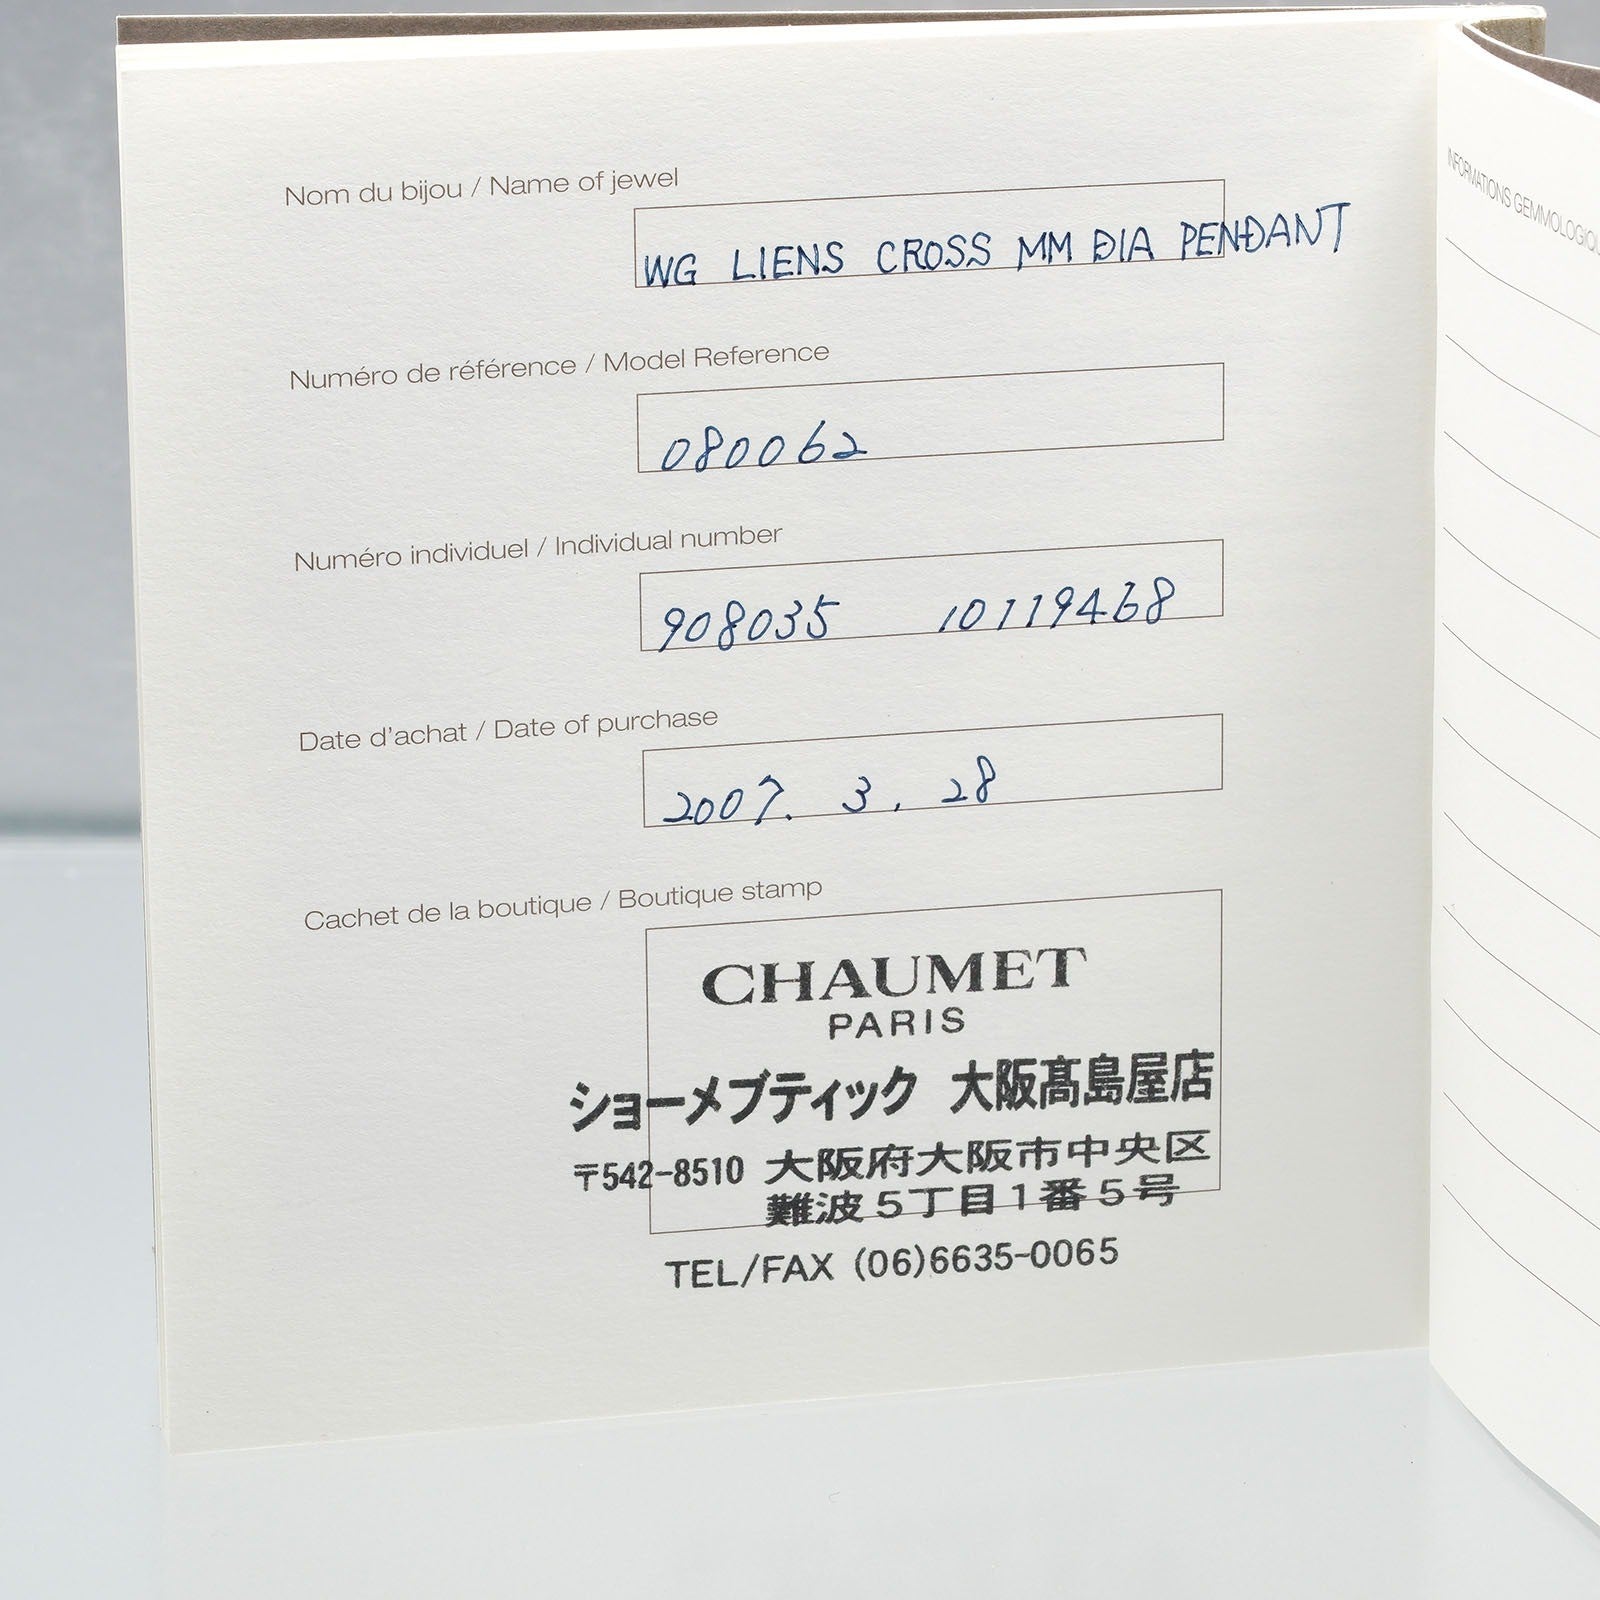 Nom du bijou / Name of jewel
WG LIENS CROSS MM DIA PENDANT
Numéro de référence / Model Reference
080062
Numéro individuel / Individual number
908035 10119468
Date d'achat / Date of purchase
2007. 3. 28
Cachet de la boutique / Boutique stamp
CHAUMET
PARIS
ショーメブティック 大阪髙島屋店
〒542-8510 大阪府大阪市中央区
難波5丁目1番5号
TEL/FAX (06)6635-0065
INFORMATIONS